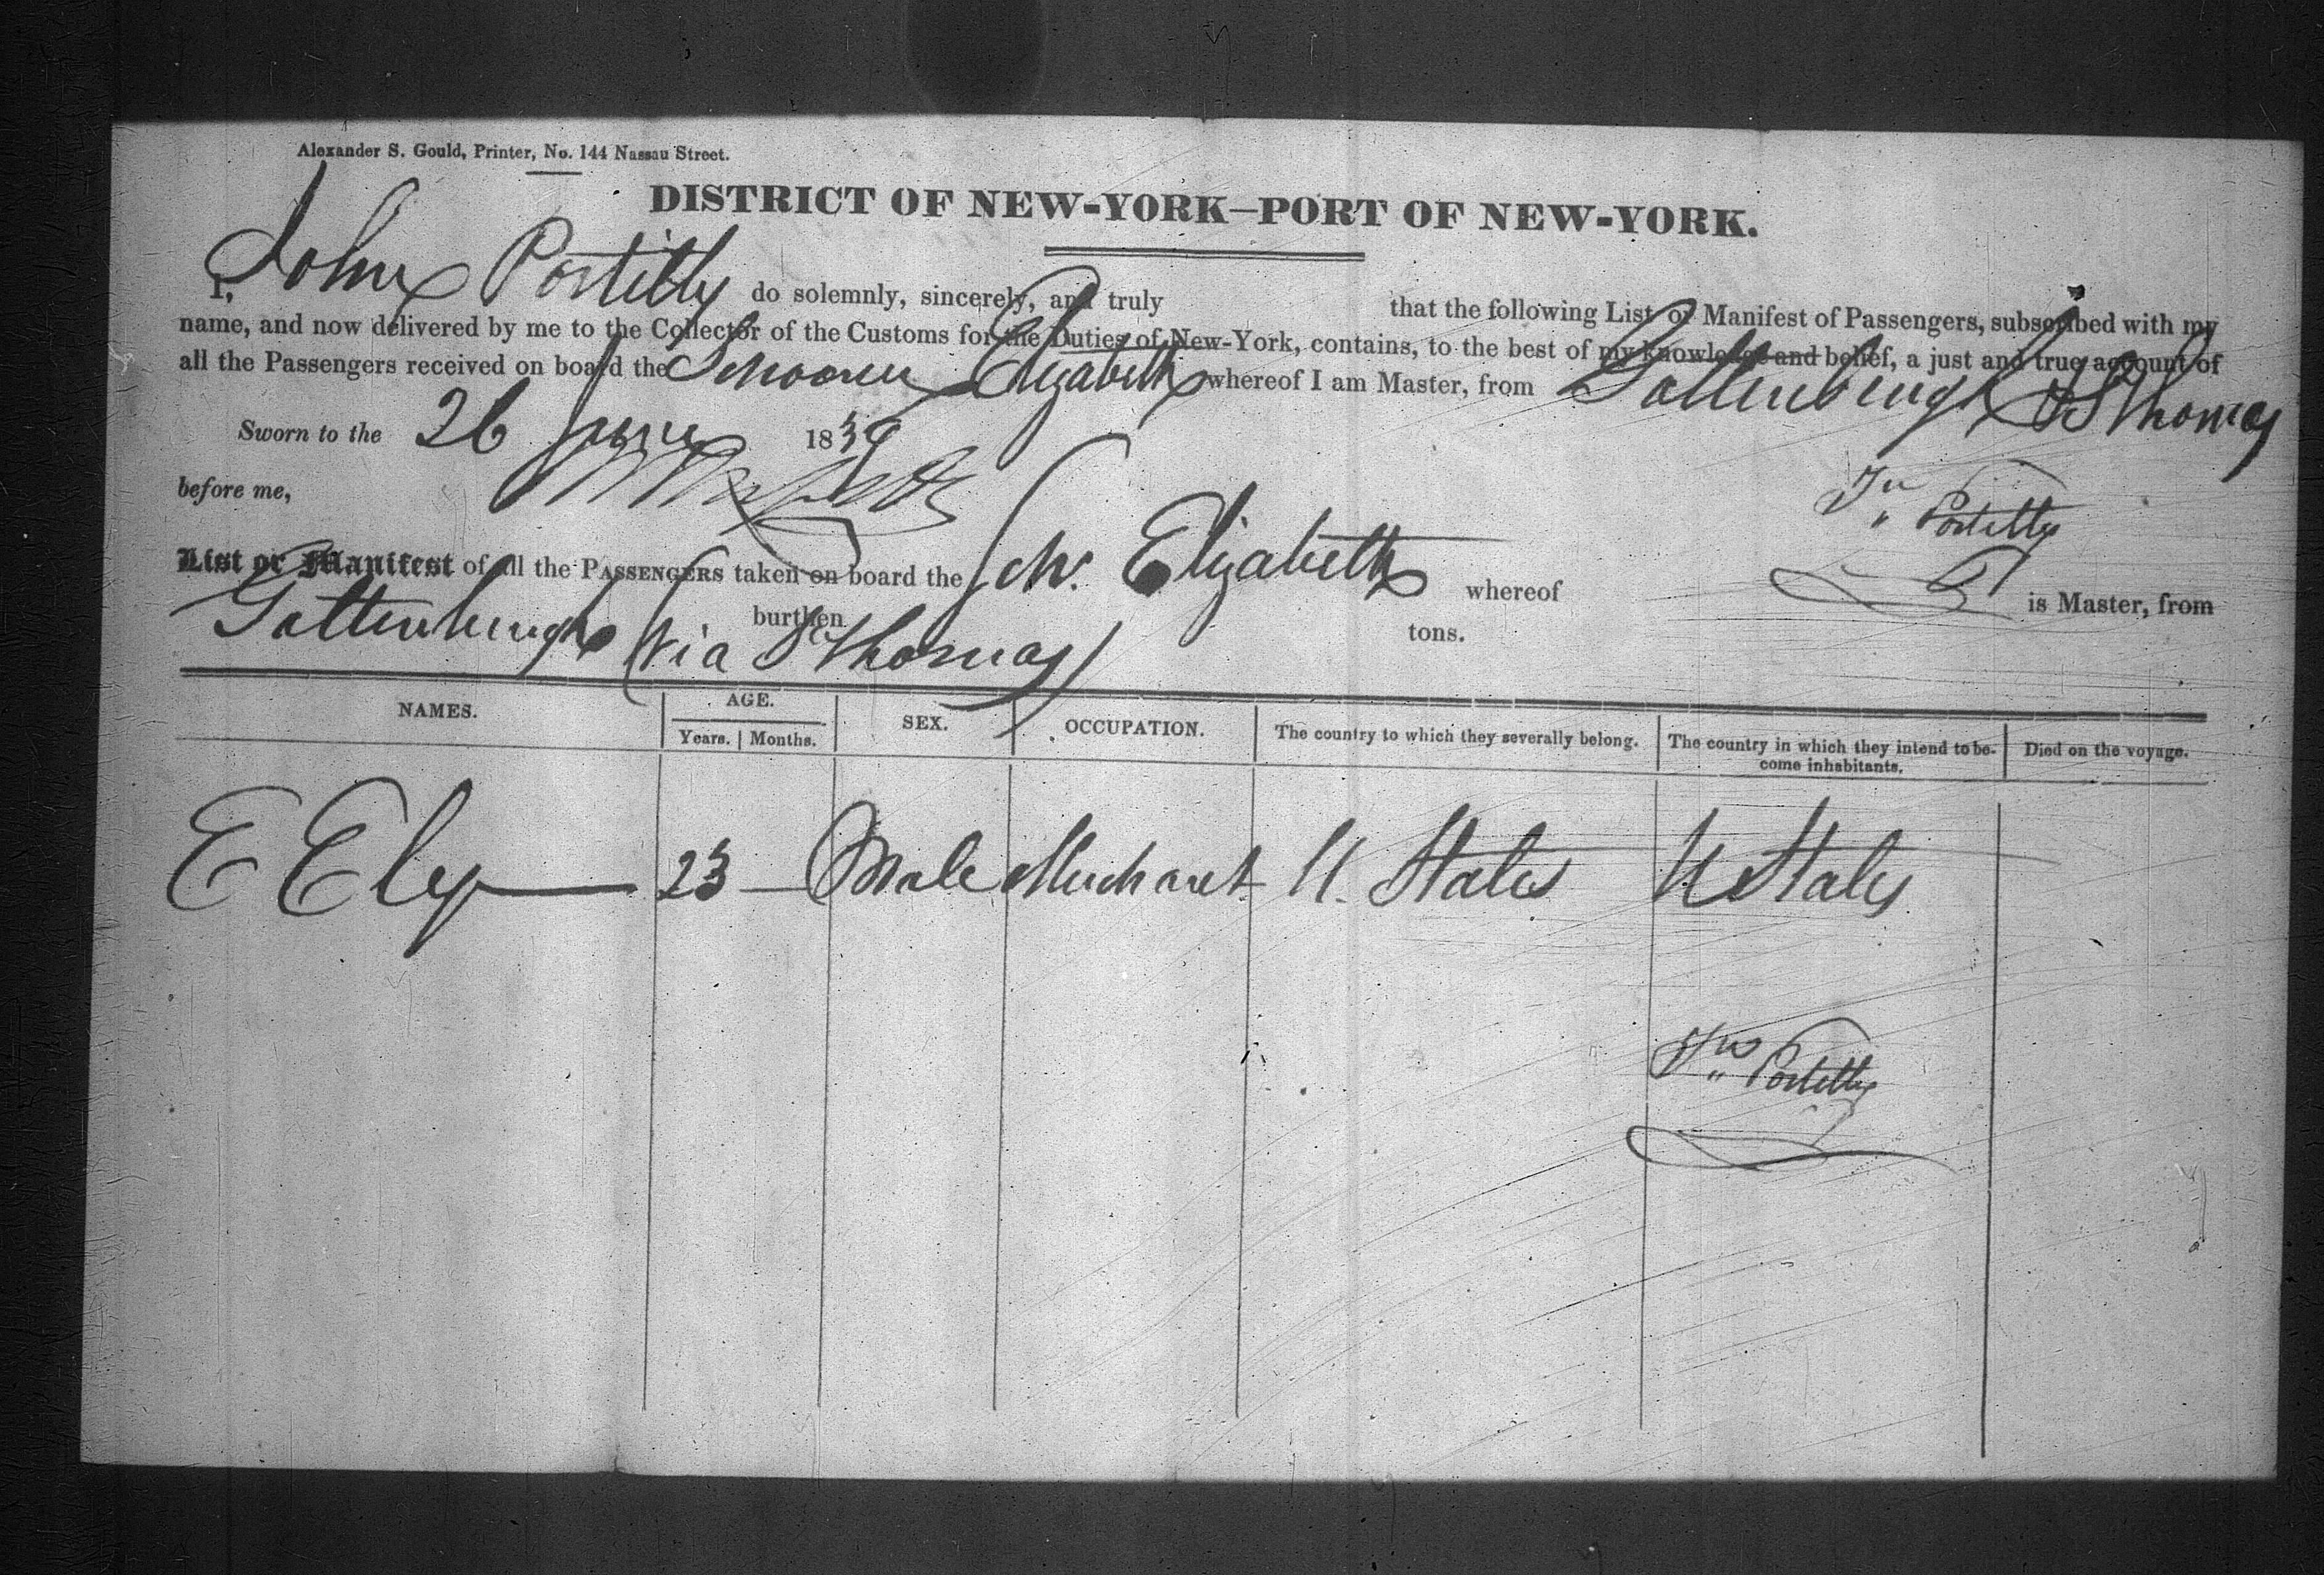 Alexander S. Gould, Printer, No. 144 Nassau Street.
DISTRICT OF NEW-YORK—PORT OF NEW-YORK.
I, John Portilly do solemnly, sincerely, and truly that the following List or Manifest of Passengers, subscribed with my
name, and now delivered by me to the Collector of the Customs for the Duties of New-York, contains, to the best of my knowledge and belief, a just and true account of
all the Passengers received on board the Schooner Elizabeth whereof I am Master, from Gottenburgh & St Thomas
Sworn to the 26 June 1839
before me,
Jn Portilly
List or Manifest of all the PASSENGERS taken on board the Schr. Elizabeth whereof is Master, from
Gottenburgh (via St Thomas) burthen tons.
NAMES. AGE. SEX. OCCUPATION. The country to which they severally belong. The country in which they intend to be-come inhabitants. Died on the voyage.
Years. Months.
E Ely 23 Male Merchant U. States U States
Jn Portilly